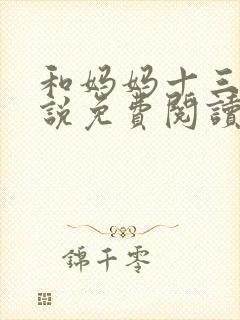 和妈妈十三
說免費閱讀
錦千零